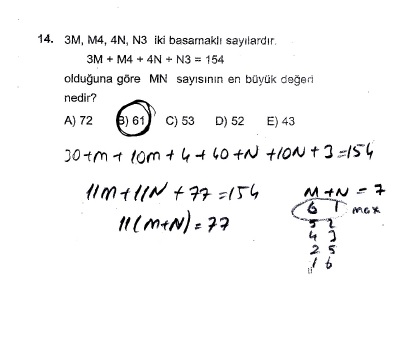 14. 3M, M4, 4N, N3 iki basamaklı sayılardır.
3M + M4 + 4N + N3 = 154
olduğuna göre MN sayısının en büyük değeri
nedir?
A) 72 B) 61 C) 53 D) 52 E) 43
30+M + 10M + 4 + 40 + N + 10N + 3 = 154
11M + 11N + 77 = 154
11(M+N) = 77
M + N = 7
6 1 max
5 2
4 3
2 5
1 6